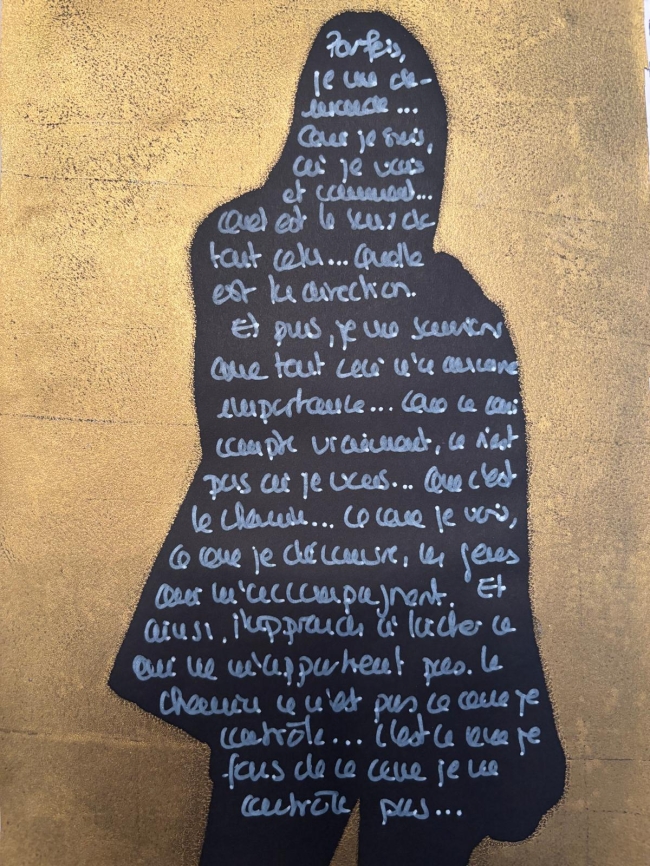 Parfois,
je me de-
mande...
Qui je suis,
où je vais
et comment...
Quel est le sens de
tout cela... Quelle
est la direction.
Et puis, je me souviens
que tout ceci n'a aucune
importance... Car ce qui
compte vraiment, ce n'est
pas où je vais... Que c'est
le chemin... Ce que je vois,
ce que je découvre, les gens
qui m'accompagnent. Et
ainsi, j'apprends à lâcher ce
qui ne m'appartient pas. Le
chemin ce n'est pas ce que je
contrôle... C'est ce que je
fais de ce que je ne
contrôle pas...